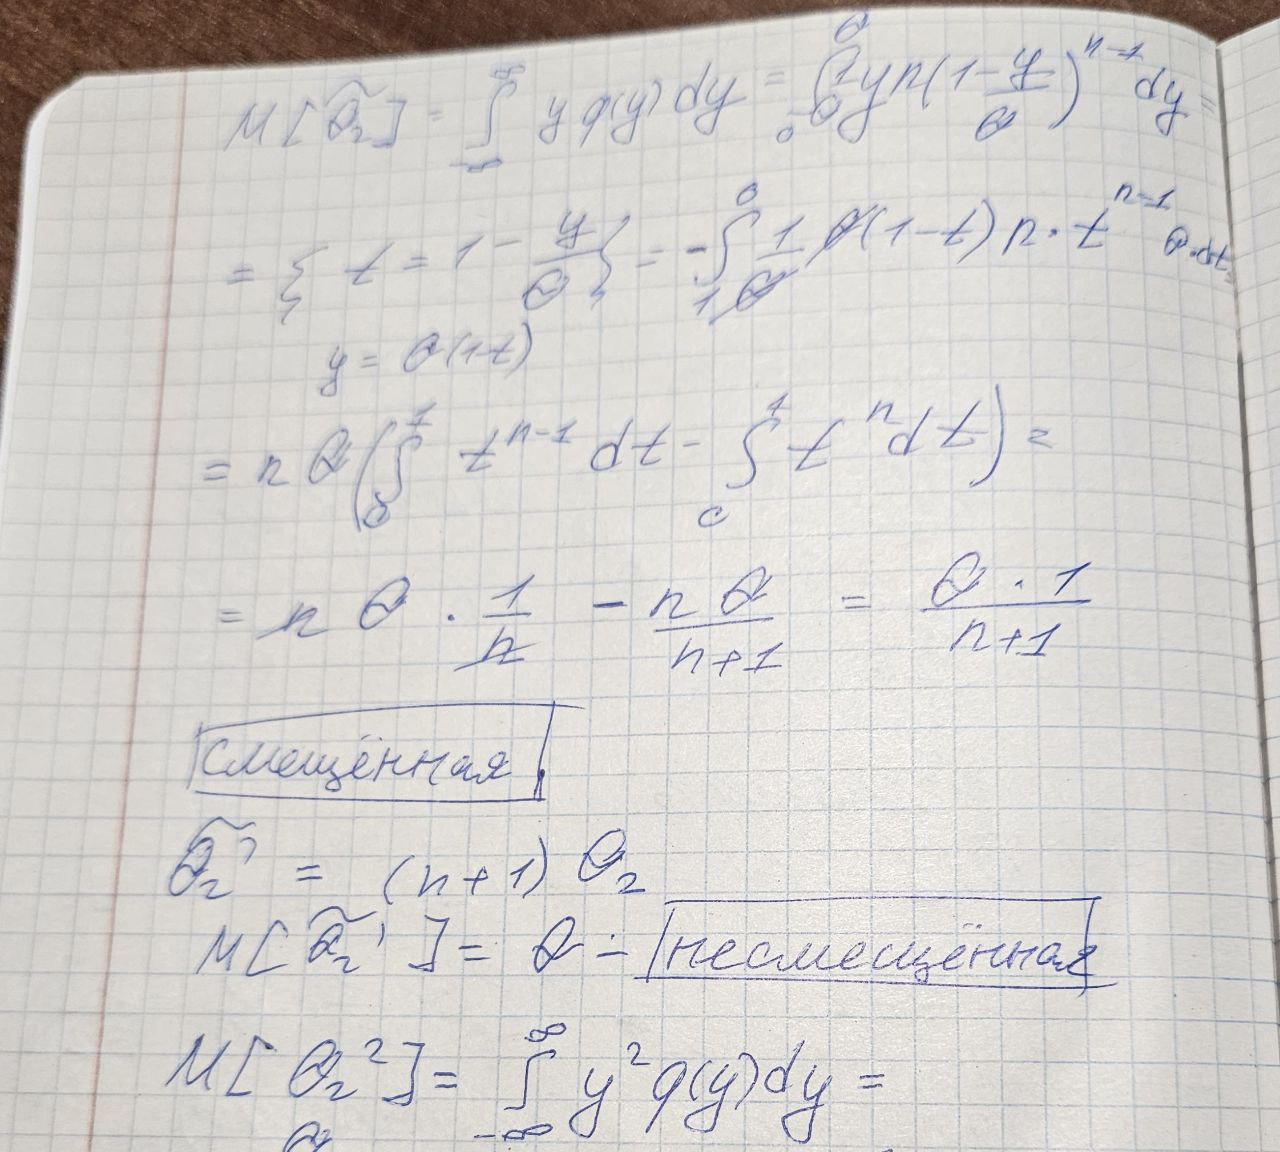 M[θ̃₂] = ∫_{-∞}^{∞} y φ(y) dy = ∫_0^θ 1/θ y n(1 - y/θ)^{n-1} dy =
= { t = 1 - y/θ } = -∫_1^0 1/θ θ(1-t) n · t^{n-1} θ·dt =
y = θ(1-t)
= n θ (∫_0^1 t^{n-1} dt - ∫_0^1 t^n dt) =
= n θ · 1/n - nθ/(n+1) = θ·1/(n+1)
смещённая
θ̃₂' = (n+1) θ₂
M[θ̃₂'] = θ - несмещённая
M[θ₂²] = ∫_{-∞}^{∞} y² φ(y) dy =
θ